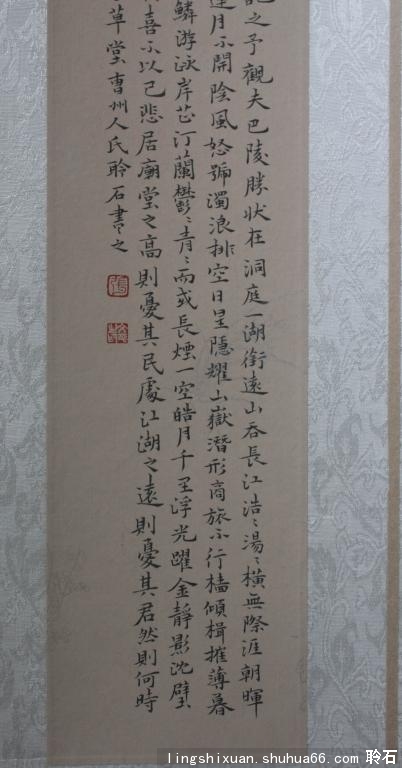 記之予觀夫巴陵勝狀在洞庭一湖銜遠山吞長江浩〻湯〻橫無際涯朝暉
連月不開陰風怒號濁浪排空日星隱耀山嶽潛形商旅不行檣傾楫摧薄暮
鱗游泳岸芷汀蘭鬱〻青〻而或長煙一空皓月千里浮光躍金靜影沈璧
喜不以己悲居廟堂之高則憂其民處江湖之遠則憂其君然則何時
草堂曹州人氏聆石書之
lingshixuan.shuhua66.com 聆石